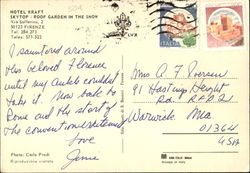 HOTEL KRAFT
SKYTOP - ROOF GARDEN IN THE SNOW
Via Solferino, 2
50123 FIRENZE
Tel. 284.273
Telex: 571.523
I sauntered around
this beloved Florence
until my ankle couldn't
take it. Now back to
Rome and the start of
the convention
Love
Jane
Photo: Carlo Prodi
Riproduzione vietata
ITALIA
Miss A F
91 Hastings Height
Rd
Warwick Ma
01364
USA